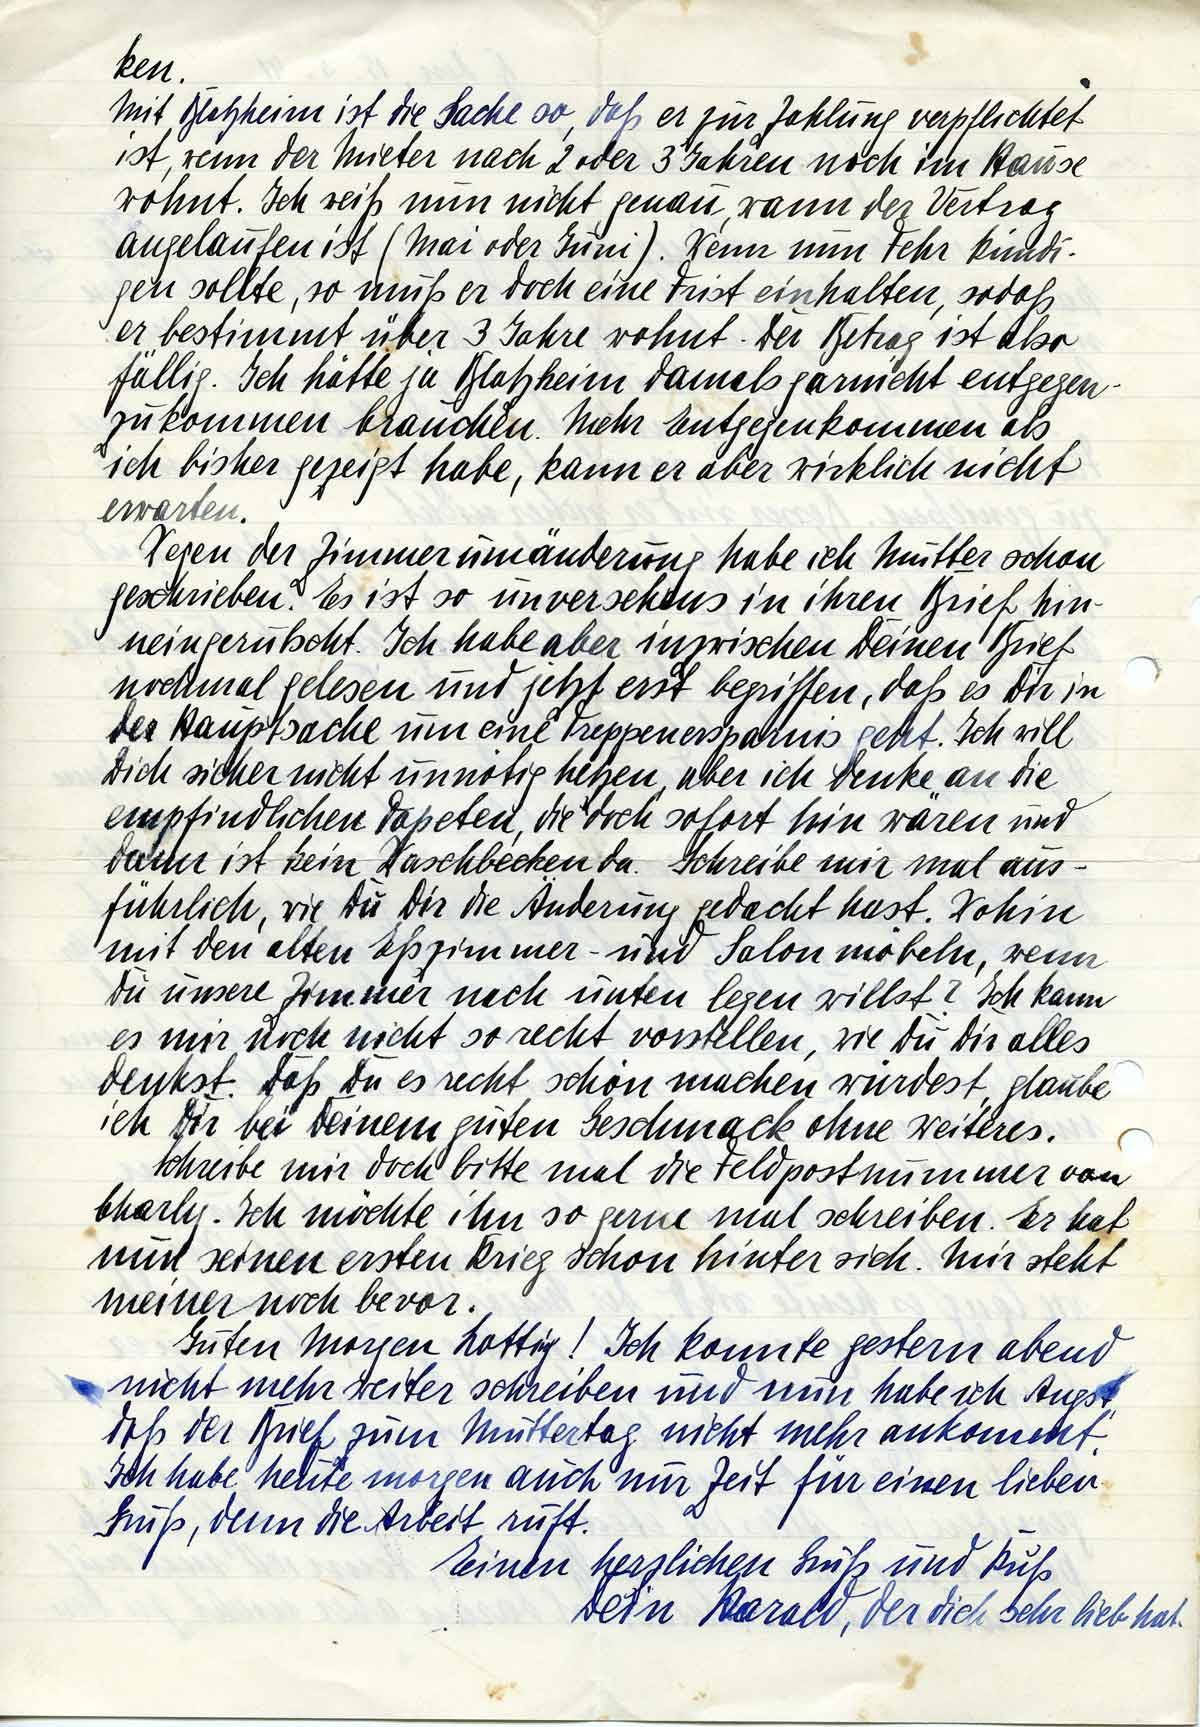 ken.
Mit Blatzheim ist die Sache so, daß er zur Zahlung verpflichtet
ist, wenn der Mieter nach 2 oder 3 Jahren noch im Hause
wohnt. Ich weiß nun nicht genau, wann der Vertrag
angelaufen ist (Mai oder Juni). Wenn nun Fehr kündi-
gen sollte, so muß er doch eine Frist einhalten, sodaß
er bestimmt über 3 Jahre wohnt. Der Betrag ist also
fällig. Ich hätte ja Blatzheim damals garnicht entgegen-
zukommen brauchen. Mehr Entgegenkommen als
ich bisher gezeigt habe, kann er aber wirklich nicht
erwarten.
Wegen der Zimmerumänderung habe ich Mutter schon
geschrieben. Es ist so unversehens in ihren Brief hin-
neingerutscht. Ich habe aber inzwischen Deinen Brief
nochmal gelesen und jetzt erst begriffen, daß es Dir in
der Hauptsache um eine Treppenersparnis geht. Ich will
Dich sicher nicht unnötig hetzen, aber ich denke an die
empfindlichen Tapeten, die doch sofort hin wären und
dann ist kein Waschbecken da. Schreibe mir mal aus-
führlich, wie Du Dir die Änderung gedacht hast. Wohin
mit den alten Eßzimmer- und Salonmöbeln, wenn
Du unsere Zimmer nach unten legen willst? Ich kann
es mir noch nicht so recht vorstellen, wie Du Dir alles
denkst. Daß Du es recht schön machen würdest, glaube
ich Dir bei Deinem guten Geschmack ohne weiteres.
Schreibe mir doch bitte mal die Feldpostnummer von
Charly. Ich möchte ihm so gerne mal schreiben. Er hat
nun seinen ersten Krieg schon hinter sich. Mir steht
meiner noch bevor.
Guten Morgen Lottig! Ich konnte gestern abend
nicht mehr weiter schreiben und nun habe ich Angst,
daß der Brief zum Muttertag nicht mehr ankommt.
Ich habe heute morgen auch nur Zeit für einen lieben
Gruß, denn die Arbeit ruft.
Einen herzlichen Gruß und Kuß
Dein Harald, der dich sehr lieb hat.